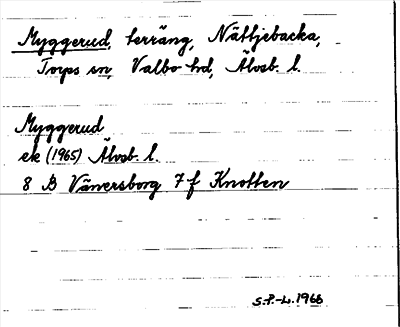 Myggerud, terräng, Nättjebacka,
Torps sn, Valbo hd, Älvsb. l.
Myggerud
ek (1965) Älvsb. l.
8 B Vänersborg 7 f Knotten
S.P.-L. 1966